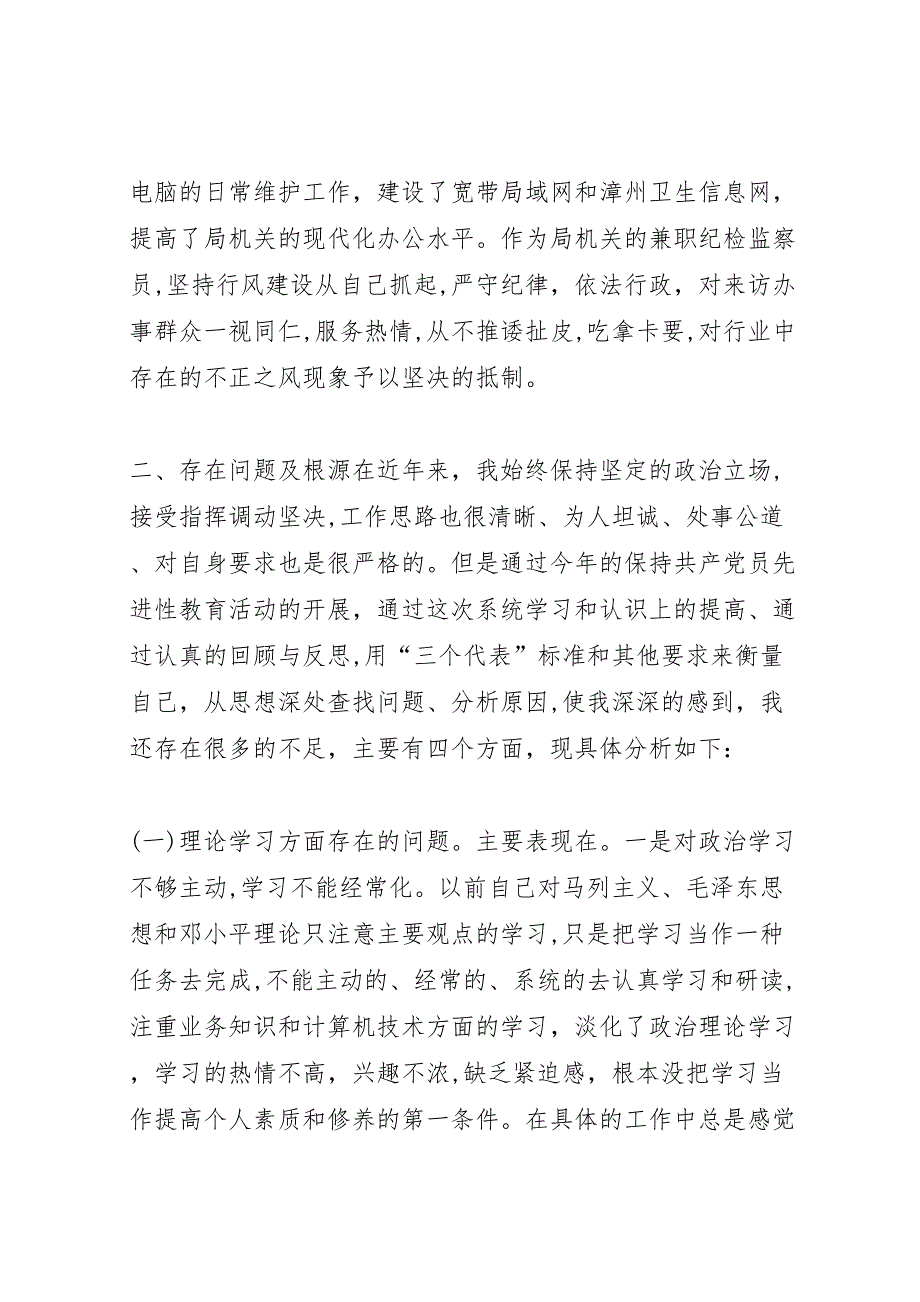 电脑的日常维护工作，建设了宽带局域网和漳州卫生信息网，
提高了局机关的现代化办公水平。作为局机关的兼职纪检监察
员,坚持行风建设从自己抓起,严守纪律，依法行政，对来访办
事群众一视同仁,服务热情,从不推诿扯皮,吃拿卡要,对行业中
存在的不正之风现象予以坚决的抵制。
二、存在问题及根源在近年来，我始终保持坚定的政治立场,
接受指挥调动坚决,工作思路也很清晰、为人坦诚、处事公道
、对自身要求也是很严格的。但是通过今年的保持共产党员先
进性教育活动的开展，通过这次系统学习和认识上的提高、通
过认真的回顾与反思,用“三个代表”标准和其他要求来衡量
自己，从思想深处查找问题、分析原因,使我深深的感到，我
还存在很多的不足，主要有四个方面，现具体分析如下：
(一)理论学习方面存在的问题。主要表现在。一是对政治学习
不够主动,学习不能经常化。以前自己对马列主义、毛泽东思
想和邓小平理论只注意主要观点的学习,只是把学习当作一种
任务去完成,不能主动的、经常的、系统的去认真学习和研读,
注重业务知识和计算机技术方面的学习，淡化了政治理论学习
，学习的热情不高，兴趣不浓,缺乏紧迫感，根本没把学习当
作提高个人素质和修养的第一条件。在具体的工作中总是感觉